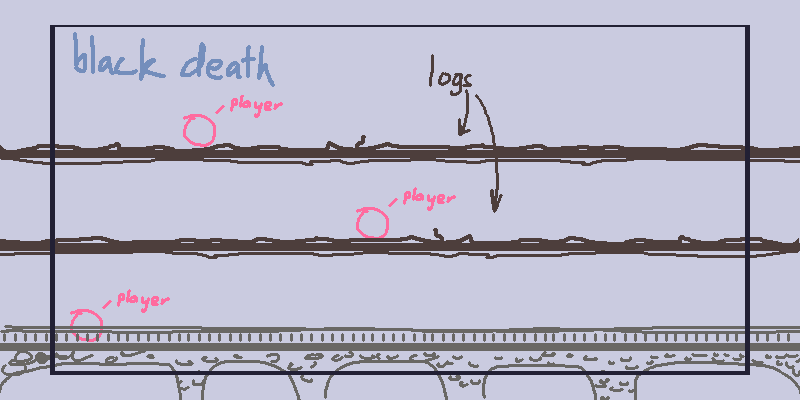 black death
logs
player
player
player